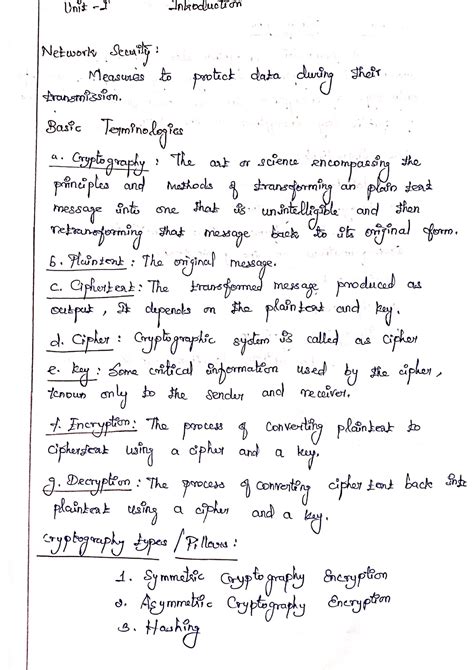 Unit - I Introduction
Network Security :
Measures to protect data during their
transmission.
Basic Terminologies
a. Cryptography : The art or science encompassing the
principles and methods of transforming an plain text
message into one that is unintelligible and then
retransforming that message back to its original form.
b. Plaintext : The original message.
c. Ciphertext : The transformed message produced as
output, It depends on the plaintext and key.
d. Cipher : Cryptographic system is called as cipher
e. Key : Some critical information used by the cipher,
known only to the sender and receiver.
f. Encryption : The process of converting plaintext to
ciphertext using a cipher and a key.
g. Decryption : The process of converting cipher text back into
plaintext using a cipher and a key.
Cryptography types / Pillars :
1. Symmetric Cryptography Encryption
2. Asymmetric Cryptography Encryption
3. Hashing